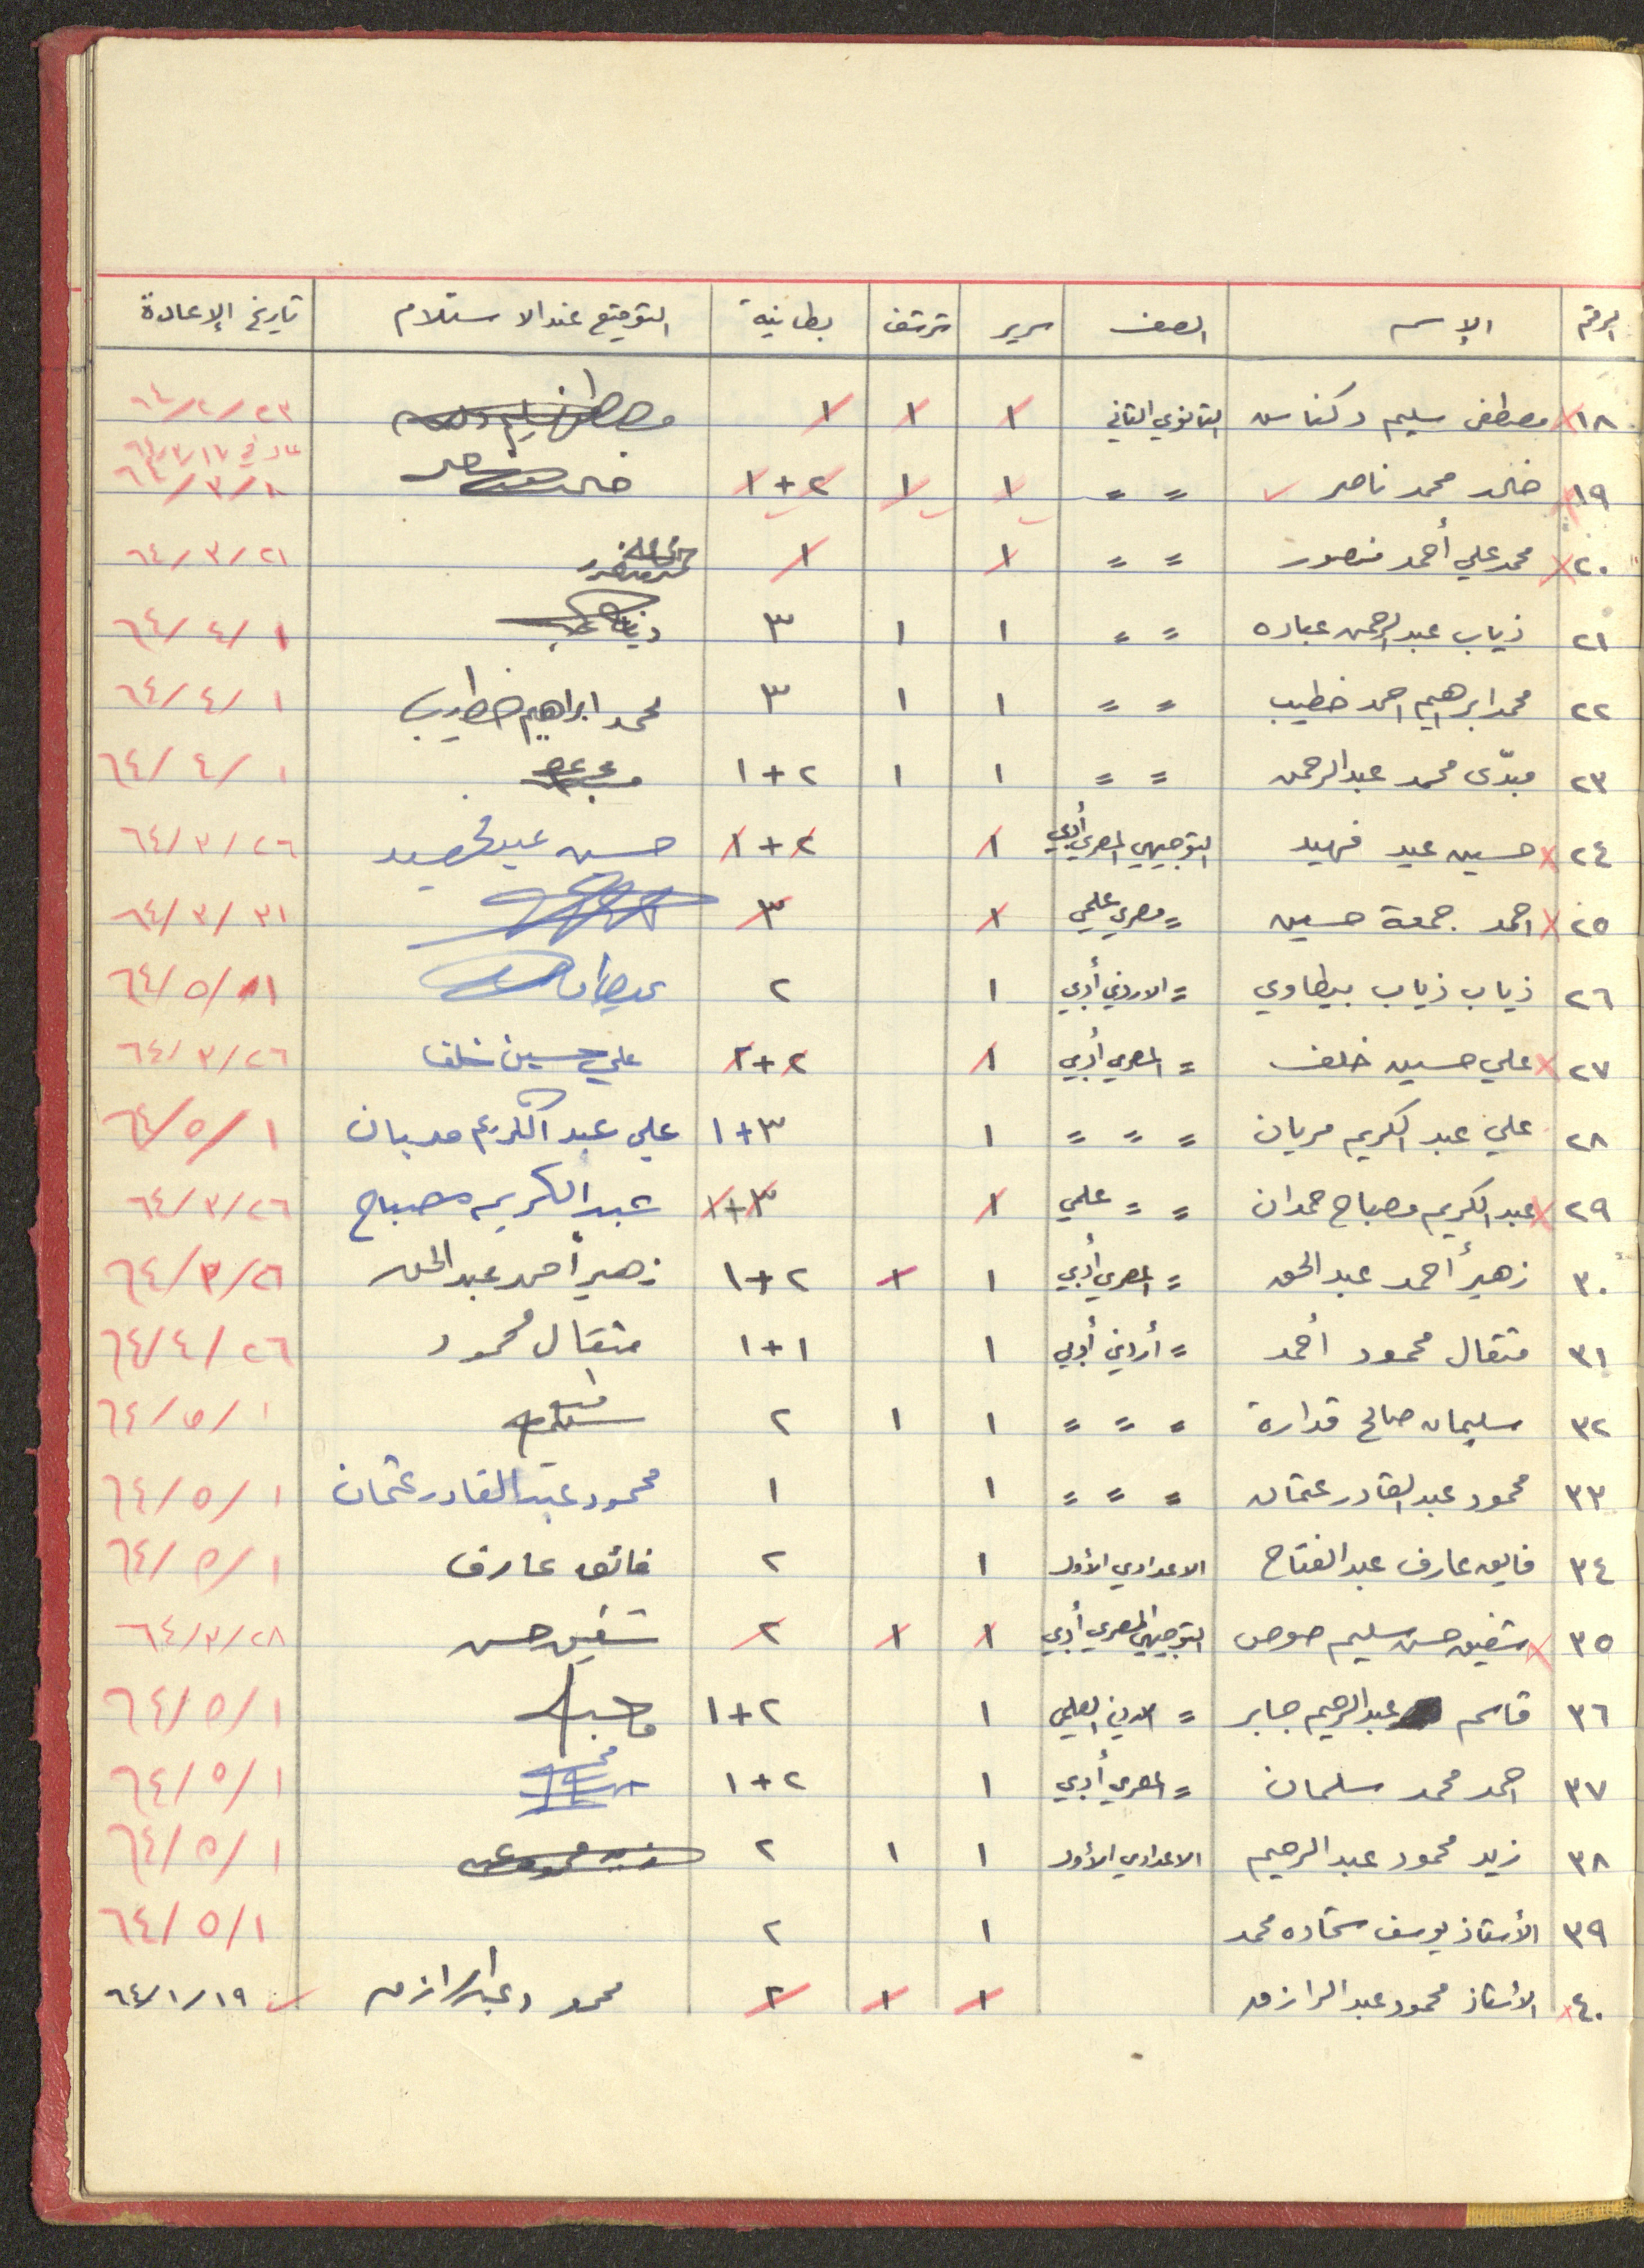 الرقم الإسم الصف سرير شرشف بطانية التوقيع عند الاستلام تاريخ الإعادة
١٨ مصطفى سليم دكناس الثانوي الثاني ١ ١ ١ مصطفى سليم ٢٣/٢/٦٤
عاد في ١٧/٣/٦٤
١٩ خالد محمد ناصر = = ١ ١ ٢+١ ٨/٣/٦٤
٢٠ محمد علي أحمد منصور = = ١ ١ ٢١/٣/٦٤
٢١ ذياب عبد الرحمن عباده = = ١ ١ ٣ ١/٤/٦٤
٢٢ محمد ابراهيم احمد خطيب = = ١ ١ ٣ محمد ابراهيم خطيب ١/٤/٦٤
٢٣ مبدّى محمد عبد الرحمن = = ١ ١ ٢+١ ١/٤/٦٤
٢٤ حسين عيد فهيد التوجيهي المصري أدبي ١ ٢+١ حسين عيد ٢٦/٣/٦٤
٢٥ احمد جمعة حسين = مصري علمي ١ ٣ ٣١/٣/٦٤
٢٦ ذياب ذياب بيطاوي = الاردني أدبي ١ ٢ ١/٥/٦٤
٢٧ علي حسين خلف = المصري أدبي ١ ٢+٢ علي حسين خلف ٢٦/٣/٦٤
٢٨ علي عبد الكريم مريان = = = ١ ٣+١ علي عبد الكريم ١/٥/٦٤
٢٩ عبد الكريم مصباح حمدان = = علمي ١ ٣+١ عبد الكريم مصباح ٢٦/٣/٦٤
٣٠ زهير أحمد عبد الحق = المصري أدبي ١ ١ ٢+١ زهير أحمد عبد الحق ٢٦/٣/٦٤
٣١ مثقال محمود أحمد = أردني أدبي ١ ١+١ مثقال محمود ٢٦/٤/٦٤
٣٢ سليمان صالح قدارة = = = ١ ١ ٢ ١/٥/٦٤
٣٣ محمود عبد القادر عثمان = = = ١ ١ محمود عبد القادر عثمان ١/٥/٦٤
٣٤ فايق عارف عبد الفتاح الاعدادي الأول ١ ٢ فائق عارف ١/٥/٦٤
٣٥ شفيق حسن سليم صوص التوجيهي المصري أدبي ١ ١ ٢ شفيق حسن ٢٨/٣/٦٤
٣٦ قاسم عبد الرحيم جابر = العلمي ١ ٢+١ ١/٥/٦٤
٣٧ احمد محمد سلمان = المصري أدبي ١ ٢+١ ١/٥/٦٤
٣٨ زيد محمود عبد الرحيم الاعدادي الأول ١ ١ ٢ ١/٥/٦٤
٣٩ الأستاذ يوسف شحاده محمد ١ ٢ ١/٥/٦٤
٤٠ الأستاذ محمود عبد الرازق ١ ١ ٢ محمود عبد الرازق ١٩/١/٦٤